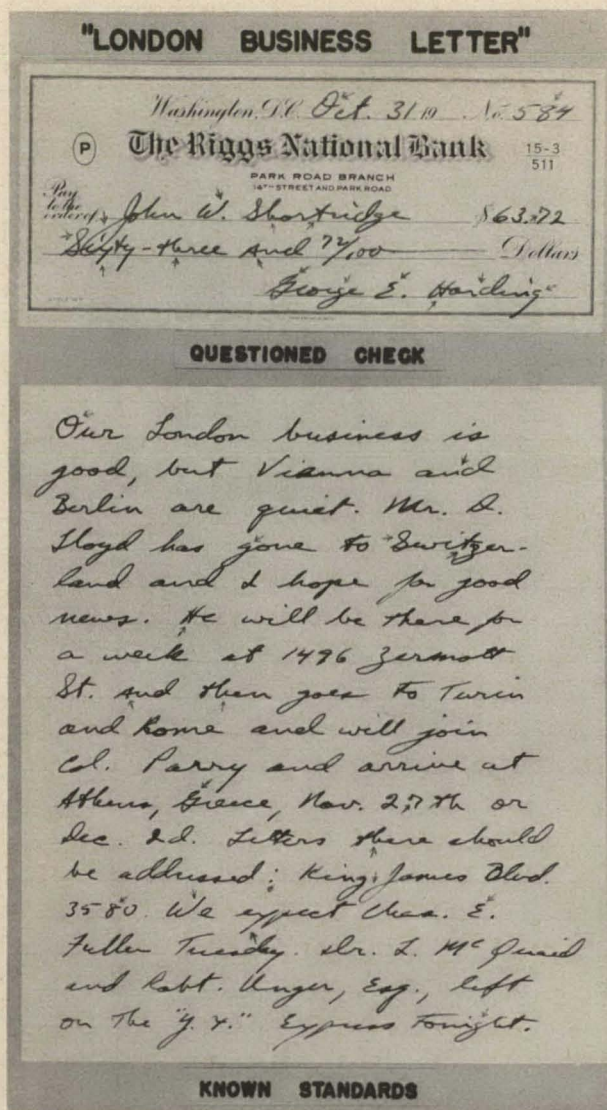 "LONDON BUSINESS LETTER"
Washington, D.C. Oct. 31 19 No. 584
P The Riggs National Bank 15-3
511
PARK ROAD BRANCH
14TH STREET AND PARK ROAD
Pay
to the
order of John W. Shortridge $63.72
Sixty-three and 72/100 Dollars
George E. Harding
QUESTIONED CHECK
Our London business is
good, but Vianna and
Berlin are quiet. Mr. D.
Lloyd has gone to Switzer-
land and I hope for good
news. He will be there for
a week at 1496 Zermott
St. and then goes to Turin
and Rome and will join
Col. Parry and arrive at
Athens, Greece, Nov. 27th or
Dec. 2d. Letters there should
be addressed: King James Blvd.
3580. We expect Chas. E.
Fuller Tuesday. Dr. L. McQuaid
and Robt. Unger, Esq., left
on the "Y.X." Express tonight.
KNOWN STANDARDS